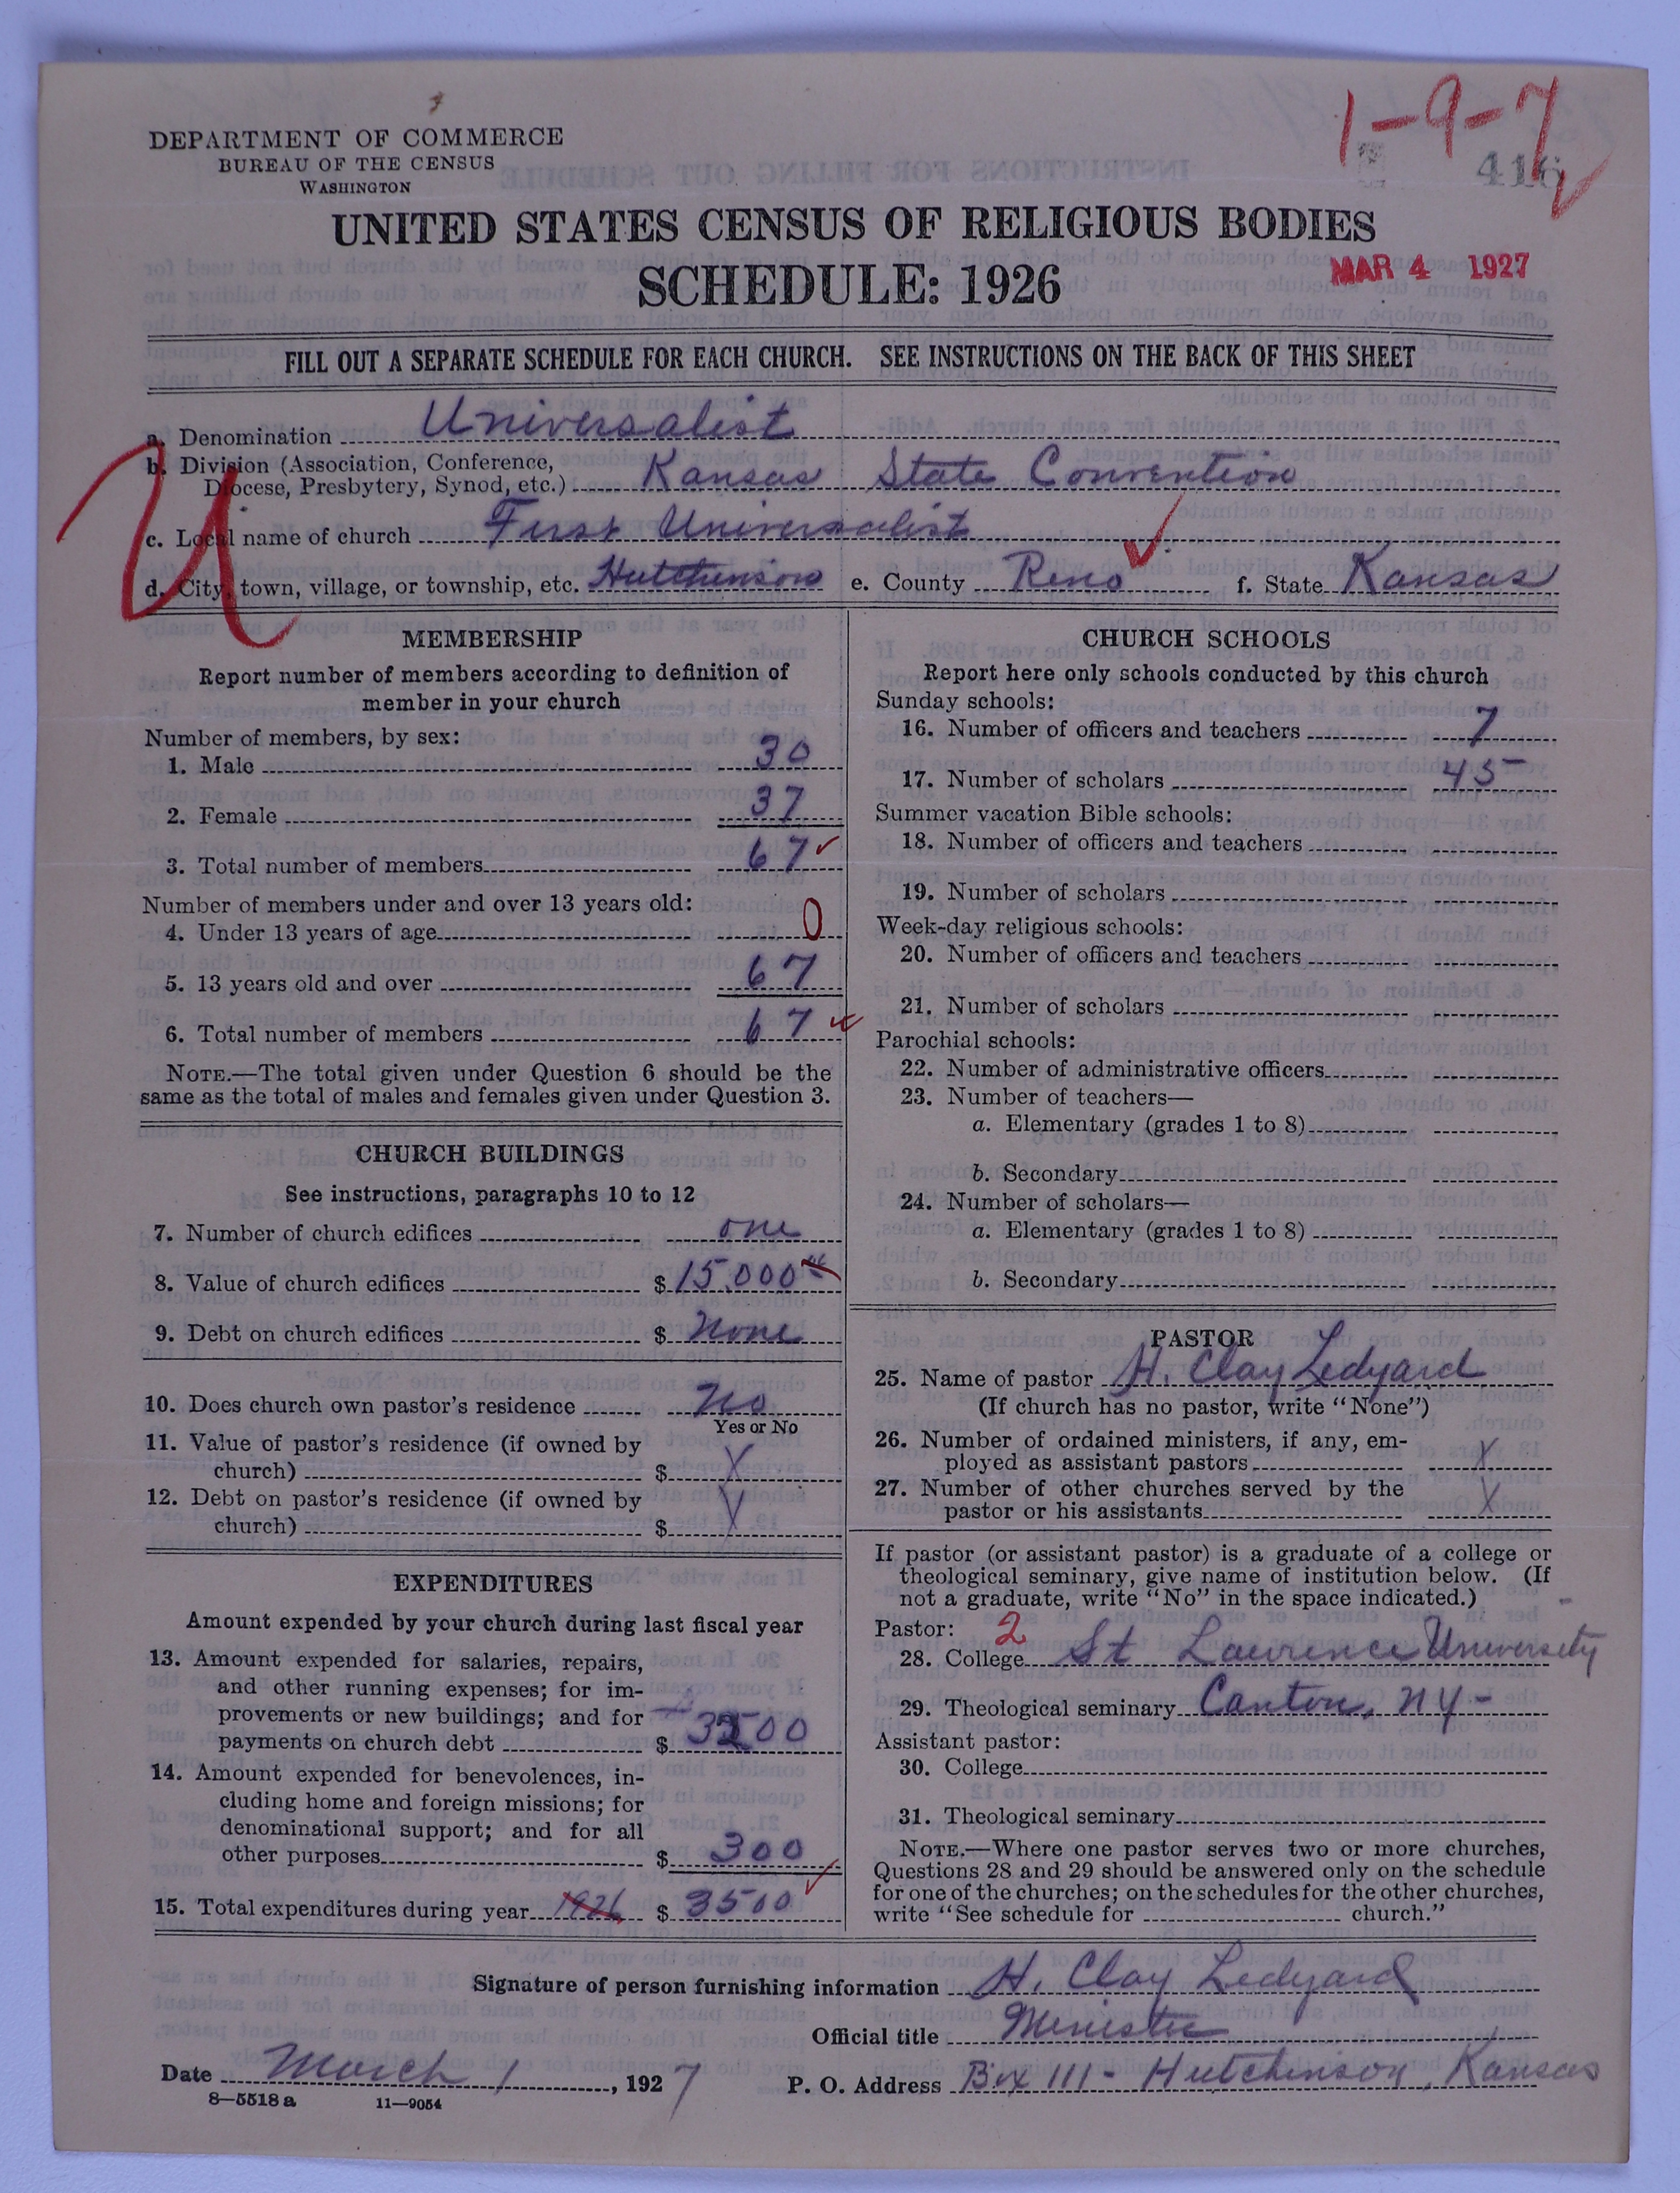 1-9-7
DEPARTMENT OF COMMERCE
BUREAU OF THE CENSUS
WASHINGTON
416
UNITED STATES CENSUS OF RELIGIOUS BODIES
SCHEDULE: 1926
MAR 4 1927
FILL OUT A SEPARATE SCHEDULE FOR EACH CHURCH. SEE INSTRUCTIONS ON THE BACK OF THIS SHEET
U
a. Denomination Universalist
b. Division (Association, Conference,
Diocese, Presbytery, Synod, etc.) Kansas State Convention
c. Local name of church First Universalist
d. City, town, village, or township, etc. Hutchinson e. County Reno f. State Kansas
MEMBERSHIP
Report number of members according to definition of
member in your church
Number of members, by sex:
1. Male 30
2. Female 37
3. Total number of members 67
Number of members under and over 13 years old:
4. Under 13 years of age 0
5. 13 years old and over 67
6. Total number of members 67
NOTE.—The total given under Question 6 should be the
same as the total of males and females given under Question 3.
CHURCH BUILDINGS
See instructions, paragraphs 10 to 12
7. Number of church edifices one
8. Value of church edifices $ 15,000
9. Debt on church edifices $ None
10. Does church own pastor's residence No
Yes or No
11. Value of pastor's residence (if owned by
church) $ X
12. Debt on pastor's residence (if owned by
church) $ X
EXPENDITURES
Amount expended by your church during last fiscal year
13. Amount expended for salaries, repairs,
and other running expenses; for im-
provements or new buildings; and for
payments on church debt $ 3200
14. Amount expended for benevolences, in-
cluding home and foreign missions; for
denominational support; and for all
other purposes $ 300
15. Total expenditures during year 1926 $ 3500
CHURCH SCHOOLS
Report here only schools conducted by this church
Sunday schools:
16. Number of officers and teachers 7
17. Number of scholars 45
Summer vacation Bible schools:
18. Number of officers and teachers
19. Number of scholars
Week-day religious schools:
20. Number of officers and teachers
21. Number of scholars
Parochial schools:
22. Number of administrative officers
23. Number of teachers—
a. Elementary (grades 1 to 8)
b. Secondary
24. Number of scholars—
a. Elementary (grades 1 to 8)
b. Secondary
PASTOR
25. Name of pastor H. Clay Ledyard
(If church has no pastor, write "None")
26. Number of ordained ministers, if any, em-
ployed as assistant pastors X
27. Number of other churches served by the
pastor or his assistants X
If pastor (or assistant pastor) is a graduate of a college or
theological seminary, give name of institution below. (If
not a graduate, write "No" in the space indicated.)
Pastor: 2
28. College St Lawrence University
29. Theological seminary Canton, NY-
Assistant pastor:
30. College
31. Theological seminary
NOTE.—Where one pastor serves two or more churches,
Questions 28 and 29 should be answered only on the schedule
for one of the churches; on the schedules for the other churches,
write "See schedule for church."
Signature of person furnishing information H. Clay Ledyard
Official title Minister
Date March 1, 1927 P. O. Address Box 111- Hutchinson, Kansas
8—5518 a 11—9054